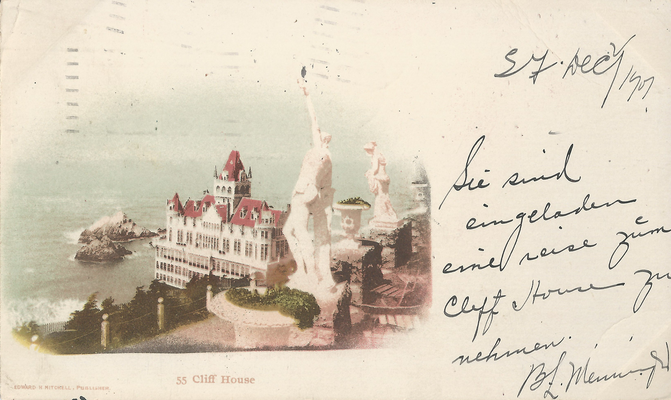 SF. Dec 2/1901
Sie sind
eingeladen
eine reise zum
Cliff House zu
nehmen.
B L.
55 Cliff House
EDWARD H. MITCHELL, PUBLISHER.